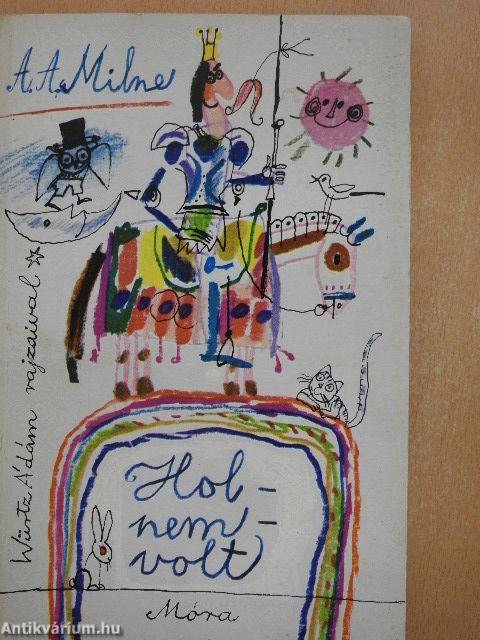 A. A. Milne
Würtz Ádám rajzaival
Hol-
nem-
volt
Móra
Antikvárium.hu